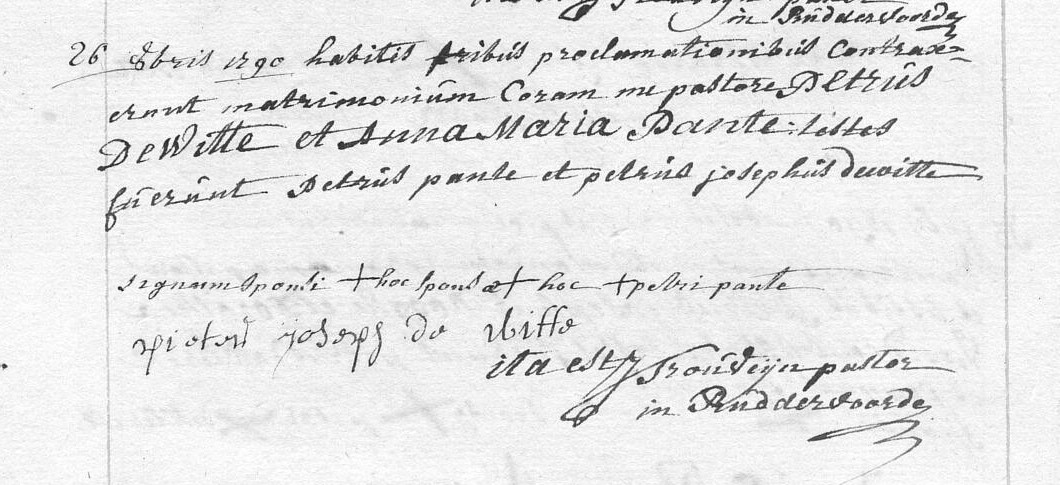 in RudderVoorde
26 8bris 1790 habitis tribus proclamationibus Contrax-
erunt matrimonium Coram me pastore Petrus
DeWitte et Anna Maria Pante: testes
fuerunt Petrus pante et petrus josephus dewitte
signum sponsi + hoc sponsæ + hoc + petri pante
pieter joseph de Witte
ita est pastor
in Ruddervoorde